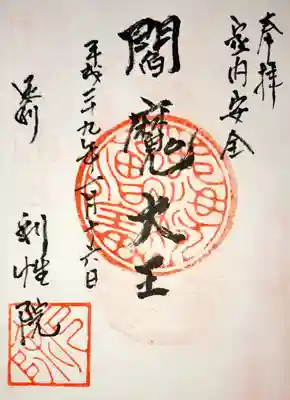 奉拝
家内安全
閻魔大王
平成二十九年一月十六日
利性院